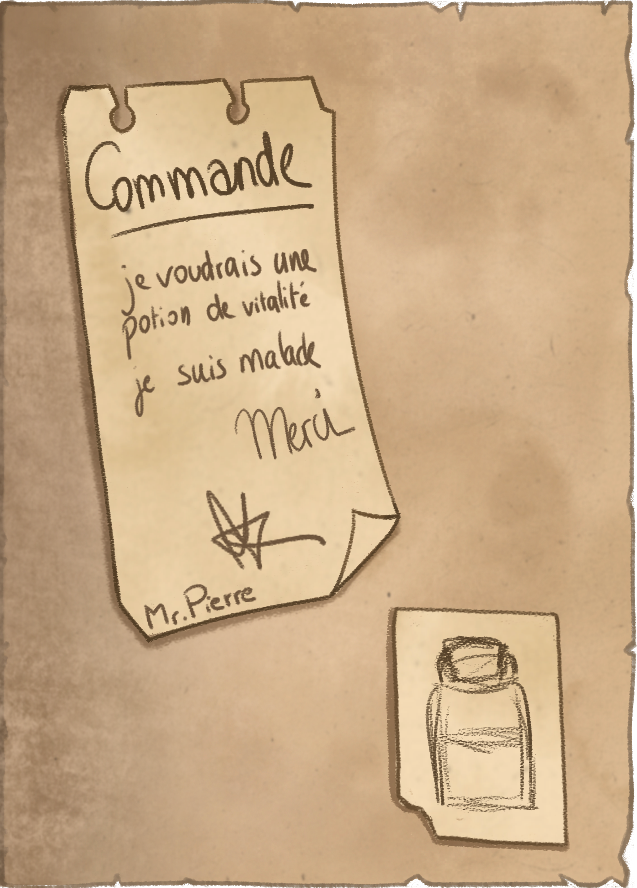 Commande
je voudrais une
potion de vitalité
je suis malade
Merci
Mr.Pierre